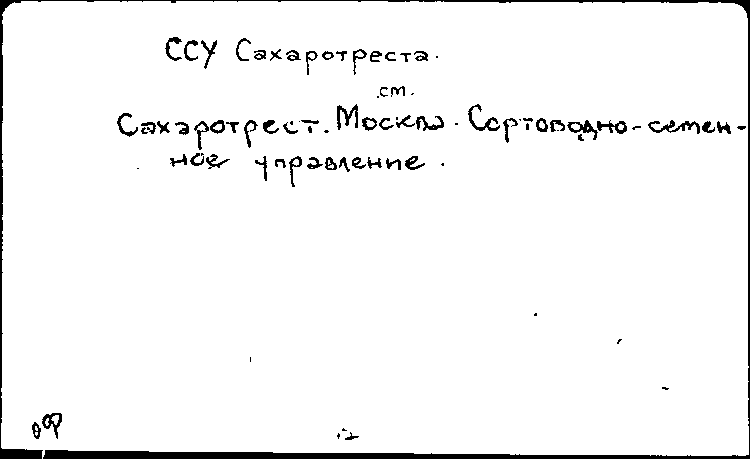 ССУ Сахаротреста.
см.
Сахаротрест. Москва. Сортоводно-семен-
ное управление.